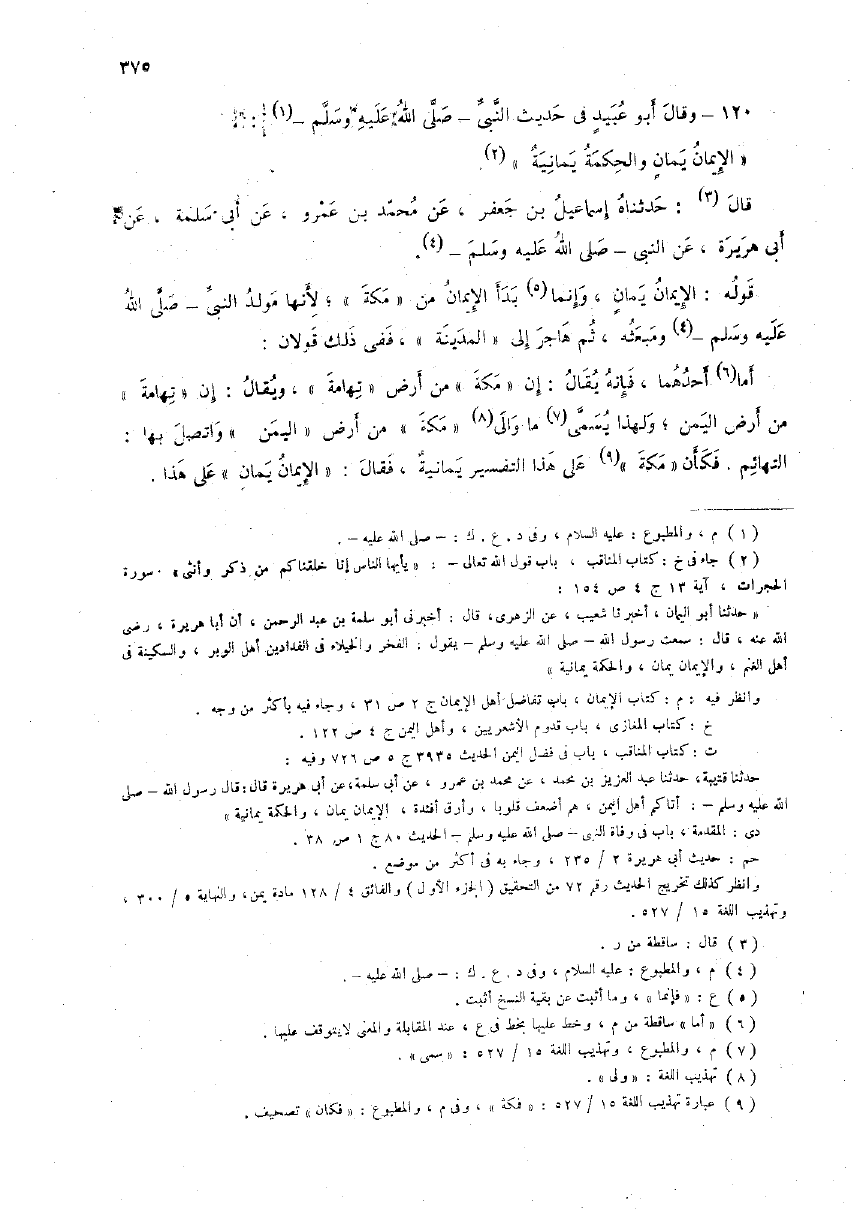 ٣٧٥
١٢٠ - وقالَ أَبو عُبَيدٍ فى حَديث النَّبِيِّ - صَلَّى اللهُ عَلَيهِ وسَلَّم -(١) :
« الإِيمَانُ يَمانٍ والحِكمَةُ يَمانِيَةٌ » (٢).
قالَ (٣) : حَدثناهُ إِسماعيلُ بن جَعفر ، عَن مُحمّد بن عَمْرو ، عَن أَبى سَلمة ، عَن
أَبى هرَيرَة ، عَن النبى - صَلى اللهُ عَليه وسَلمَ -(٤).
قَولُه : الإِيمَانُ يَمانٍ ، وَإِنما(٥) بَدَأَ الإِيمَانُ من « مَكةَ » ؛ لأَنها مَولدُ النبىِّ - صَلَّى اللهُ
عَلَيه وسَلم -(٤) ومَبعَثُه ، ثُم هَاجرَ إِلى « المدَينَة » ، فَفى ذَلك قَولان :
أَما(٦) أَحدُهُما ، فَإِنهُ يُقَالُ : إِن « مَكَةَ » من أَرض « تِهامةَ » ، ويُقالُ : إِن « تِهامَةَ »
من أَرض اليَمن ؛ وَلهذا يُسَمَّى(٧) ما وَالَى(٨) « مَكةَ » من أَرض « اليمَن » وَاتصلَ بها :
التهائم . فَكَأَن « مَكةَ »(٩) عَلى هَذا التفسير يَمانيةٌ ، فَقالَ : « الإِيمَانُ يَمانٍ » عَلى هَذا .
( ١ ) م ، والمطبوع : عليه السلام ، وفى د . ع . ك : - صلى الله عليه - .
( ٢ ) جاء فى خ : كتاب المناقب ، باب قول الله تعالى - : « يأيها الناس إنا خلقناكم من ذكر وأنثى » . سورة
الحجرات ، آية ١٣ ج ٤ ص ١٥٤ :
« حدثنا أبو اليمان ، أخبرنا شعيب ، عن الزهرى، قال : أخبرنى أبو سلمة بن عبد الرحمن ، أن أبا هريرة ، رضى
الله عنه ، قال : سمعت رسول الله - صلى الله عليه وسلم - يقول : الفخر والخيلاء فى الفدادين أهل الوبر ، والسكينة فى
أهل الغنم ، والإيمان يمان ، والحكمة يمانية »
وانظر فيه : م : كتاب الإيمان ، باب تفاضل أهل الإيمان ج ٢ ص ٣١ ، وجاء فيه بأكثر من وجه .
خ : كتاب المغازى ، باب قدوم الأشعريين ، وأهل اليمن ج ٤ ص ١٢٢ .
ت : كتاب المناقب ، باب فى فضل اليمن الحديث ٣٩٣٥ ج ٥ ص ٧٢٦ وفيه :
حدثنا قتيبة، حدثنا عبد العزيز بن محمد ، عن محمد بن عمرو ، عن أبى سلمة،عن أبى هريرة قال:قال رسول الله - صلى
الله عليه وسلم - : أتاكم أهل اليمن ، هم أضعف قلوبا ، وأرق أفئدة ، الإيمان يمان ، والحكمة يمانية »
دى : المقدمة ، باب فى وفاة النبى - صلى الله عليه وسلم - الحديث ٨٠ ج ١ ص ٣٨ .
حم : حديث أبى هريرة ٢ / ٢٣٥ ، وجاء به فى أكثر من موضع .
وانظر كذلك تخريج الحديث رقم ٧٢ من التحقيق ( الجزء الأول ) والفائق ٤ / ١٢٨ مادة يمن، والنهاية ٥ / ٣٠٠ ،
وتهذيب اللغة ١٥ / ٥٢٧ .
( ٣ ) قال : ساقطة من ر .
( ٤ ) م ، والمطبوع : عليه السلام ، وفى د . ع . ك : - صلى الله عليه - .
( ٥ ) ع : « فإنما » ، وما أثبت عن بقية النسخ أثبت .
( ٦ ) « أما » ساقطة من م ، وخط عليها بخط فى ع ، عند المقابلة والمعنى لايتوقف عليها .
( ٧ ) م ، والمطبوع ، وتهذيب اللغة ١٥ / ٥٢٧ : « سمى » .
( ٨ ) تهذيب اللغة : « ولى » .
( ٩ ) عبارة تهذيب اللغة ١٥ / ٥٢٧ : « فمكة » ، وفى م ، والمطبوع : « فكان » تصحيف .